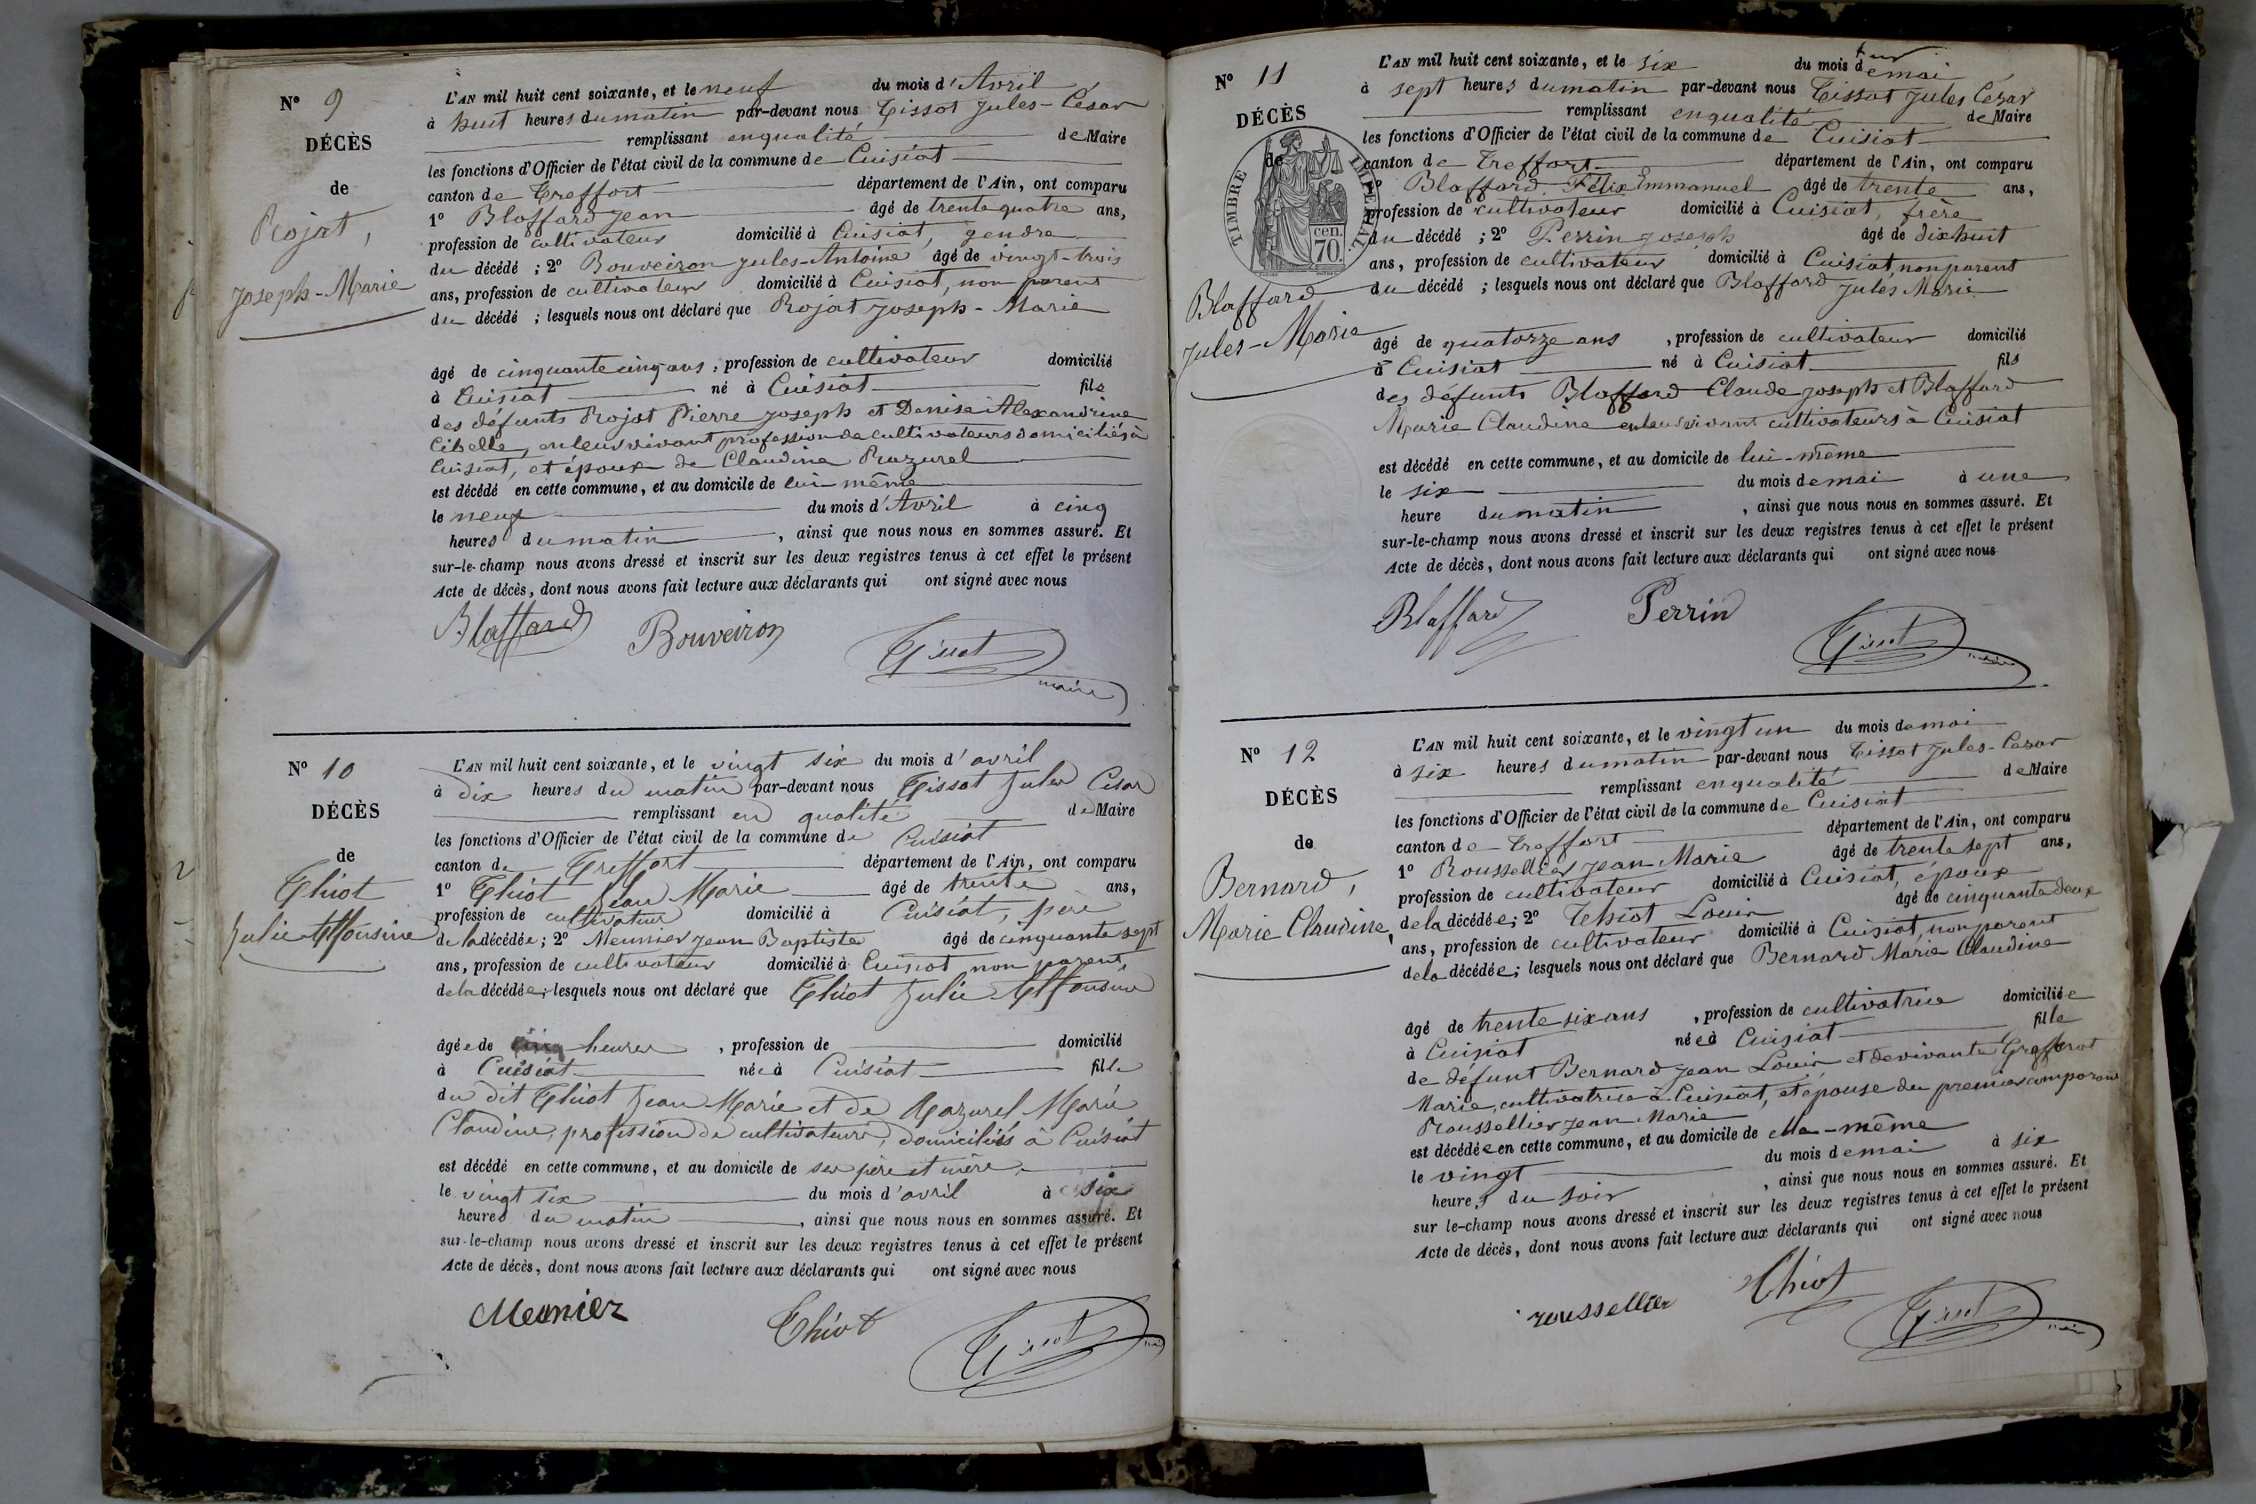 N° 9
DÉCÈS
de
Rojat,
Joseph-Marie
L'AN mil huit cent soixante, et le neuf du mois d'Avril
à huit heures du matin par-devant nous Tissot Jules-César
remplissant en qualité de Maire
les fonctions d'Officier de l'état civil de la commune de Cuisiat
canton de Treffort département de l'Ain, ont comparu
1° Blaffard Jean âgé de trente quatre ans,
profession de cultivateur domicilié à Cuisiat, gendre
du décédé ; 2° Bouveiron Jules-Antoine âgé de vingt-trois
ans, profession de cultivateur domicilié à Cuisiat, non parent
du décédé ; lesquels nous ont déclaré que Rojat Joseph-Marie
âgé de cinquante cinq ans, profession de cultivateur domicilié
à Cuisiat né à Cuisiat fils
des défunts Rojat Pierre Joseph et Denise Alexandrine
Cibelle, en leur vivant profession de cultivateurs domiciliés à
Cuisiat, et époux de Claudine Razurel
est décédé en cette commune, et au domicile de lui même
le neuf du mois d'Avril à cinq
heures du matin, ainsi que nous nous en sommes assuré. Et
sur-le-champ nous avons dressé et inscrit sur les deux registres tenus à cet effet le présent
Acte de décès, dont nous avons fait lecture aux déclarants qui ont signé avec nous
Blaffard Bouveiron Tissot
maire
N° 10
DÉCÈS
de
Thiot
Julie Alfonsine
L'AN mil huit cent soixante, et le vingt six du mois d'avril
à dix heures du matin par-devant nous Tissot Jules César
remplissant en qualité de Maire
les fonctions d'Officier de l'état civil de la commune de Cuisiat
canton de Treffort département de l'Ain, ont comparu
1° Thiot Jean Marie âgé de trente ans,
profession de cultivateur domicilié à Cuisiat, père
de la décédée ; 2° Meunier Jean Baptiste âgé de cinquante sept
ans, profession de cultivateur domicilié à Cuisiat non parent,
de la décédée ; lesquels nous ont déclaré que Thiot Julie Alfonsine
âgée de cinq heures, profession de domicilié
à Cuisiat née à Cuisiat fille
du dit Thiot Jean Marie et de Mazurel Marie
Claudine, profession de cultivateurs, domiciliés à Cuisiat
est décédé en cette commune, et au domicile de ses père et mère,
le vingt six du mois d'avril à six
heures du matin, ainsi que nous nous en sommes assuré. Et
sur-le-champ nous avons dressé et inscrit sur les deux registres tenus à cet effet le présent
Acte de décès, dont nous avons fait lecture aux déclarants qui ont signé avec nous
Meunier Thiot Tissot
N° 11
DÉCÈS
de
TIMBRE IMPÉRIAL
70 cen.
Blaffard
Jules-Marie
L'AN mil huit cent soixante, et le six du mois de mai
à sept heures du matin par-devant nous Tissot Jules César
remplissant en qualité de Maire
les fonctions d'Officier de l'état civil de la commune de Cuisiat
canton de Treffort département de l'Ain, ont comparu
1° Blaffard Félix Emmanuel âgé de trente ans,
profession de cultivateur domicilié à Cuisiat, frère
du décédé ; 2° Perrin Joseph âgé de dix huit
ans, profession de cultivateur domicilié à Cuisiat, non parent
du décédé ; lesquels nous ont déclaré que Blaffard Jules Marie
âgé de quatorze ans, profession de cultivateur domicilié
à Cuisiat né à Cuisiat fils
des défunts Blaffard Claude Joseph et Blaffard
Marie Claudine en leur vivant cultivateurs à Cuisiat
est décédé en cette commune, et au domicile de lui-même
le six du mois de mai à une
heure du matin, ainsi que nous nous en sommes assuré. Et
sur-le-champ nous avons dressé et inscrit sur les deux registres tenus à cet effet le présent
Acte de décès, dont nous avons fait lecture aux déclarants qui ont signé avec nous
Blaffard Perrin Tissot
N° 12
DÉCÈS
de
Bernard,
Marie Claudine,
L'AN mil huit cent soixante, et le vingt un du mois de mai
à six heures du matin par-devant nous Tissot Jules-César
remplissant en qualité de Maire
les fonctions d'Officier de l'état civil de la commune de Cuisiat
canton de Treffort département de l'Ain, ont comparu
1° Roussellier Jean Marie âgé de trente sept ans,
profession de cultivateur domicilié à Cuisiat, époux
de la décédée ; 2° Thiot Louis âgé de cinquante deux
ans, profession de cultivateur domicilié à Cuisiat, non parent
de la décédée ; lesquels nous ont déclaré que Bernard Marie Claudine
âgé de trente six ans, profession de cultivatrice domiciliée
à Cuisiat née à Cuisiat fille
de défunt Bernard Jean Louis et de vivante
Marie, cultivatrice à Cuisiat, et épouse du premier comparant
Roussellier Jean Marie
est décédée en cette commune, et au domicile de elle-même
le vingt du mois de mai à six
heures du soir, ainsi que nous nous en sommes assuré. Et
sur le-champ nous avons dressé et inscrit sur les deux registres tenus à cet effet le présent
Acte de décès, dont nous avons fait lecture aux déclarants qui ont signé avec nous
roussellier Thiot Tissot